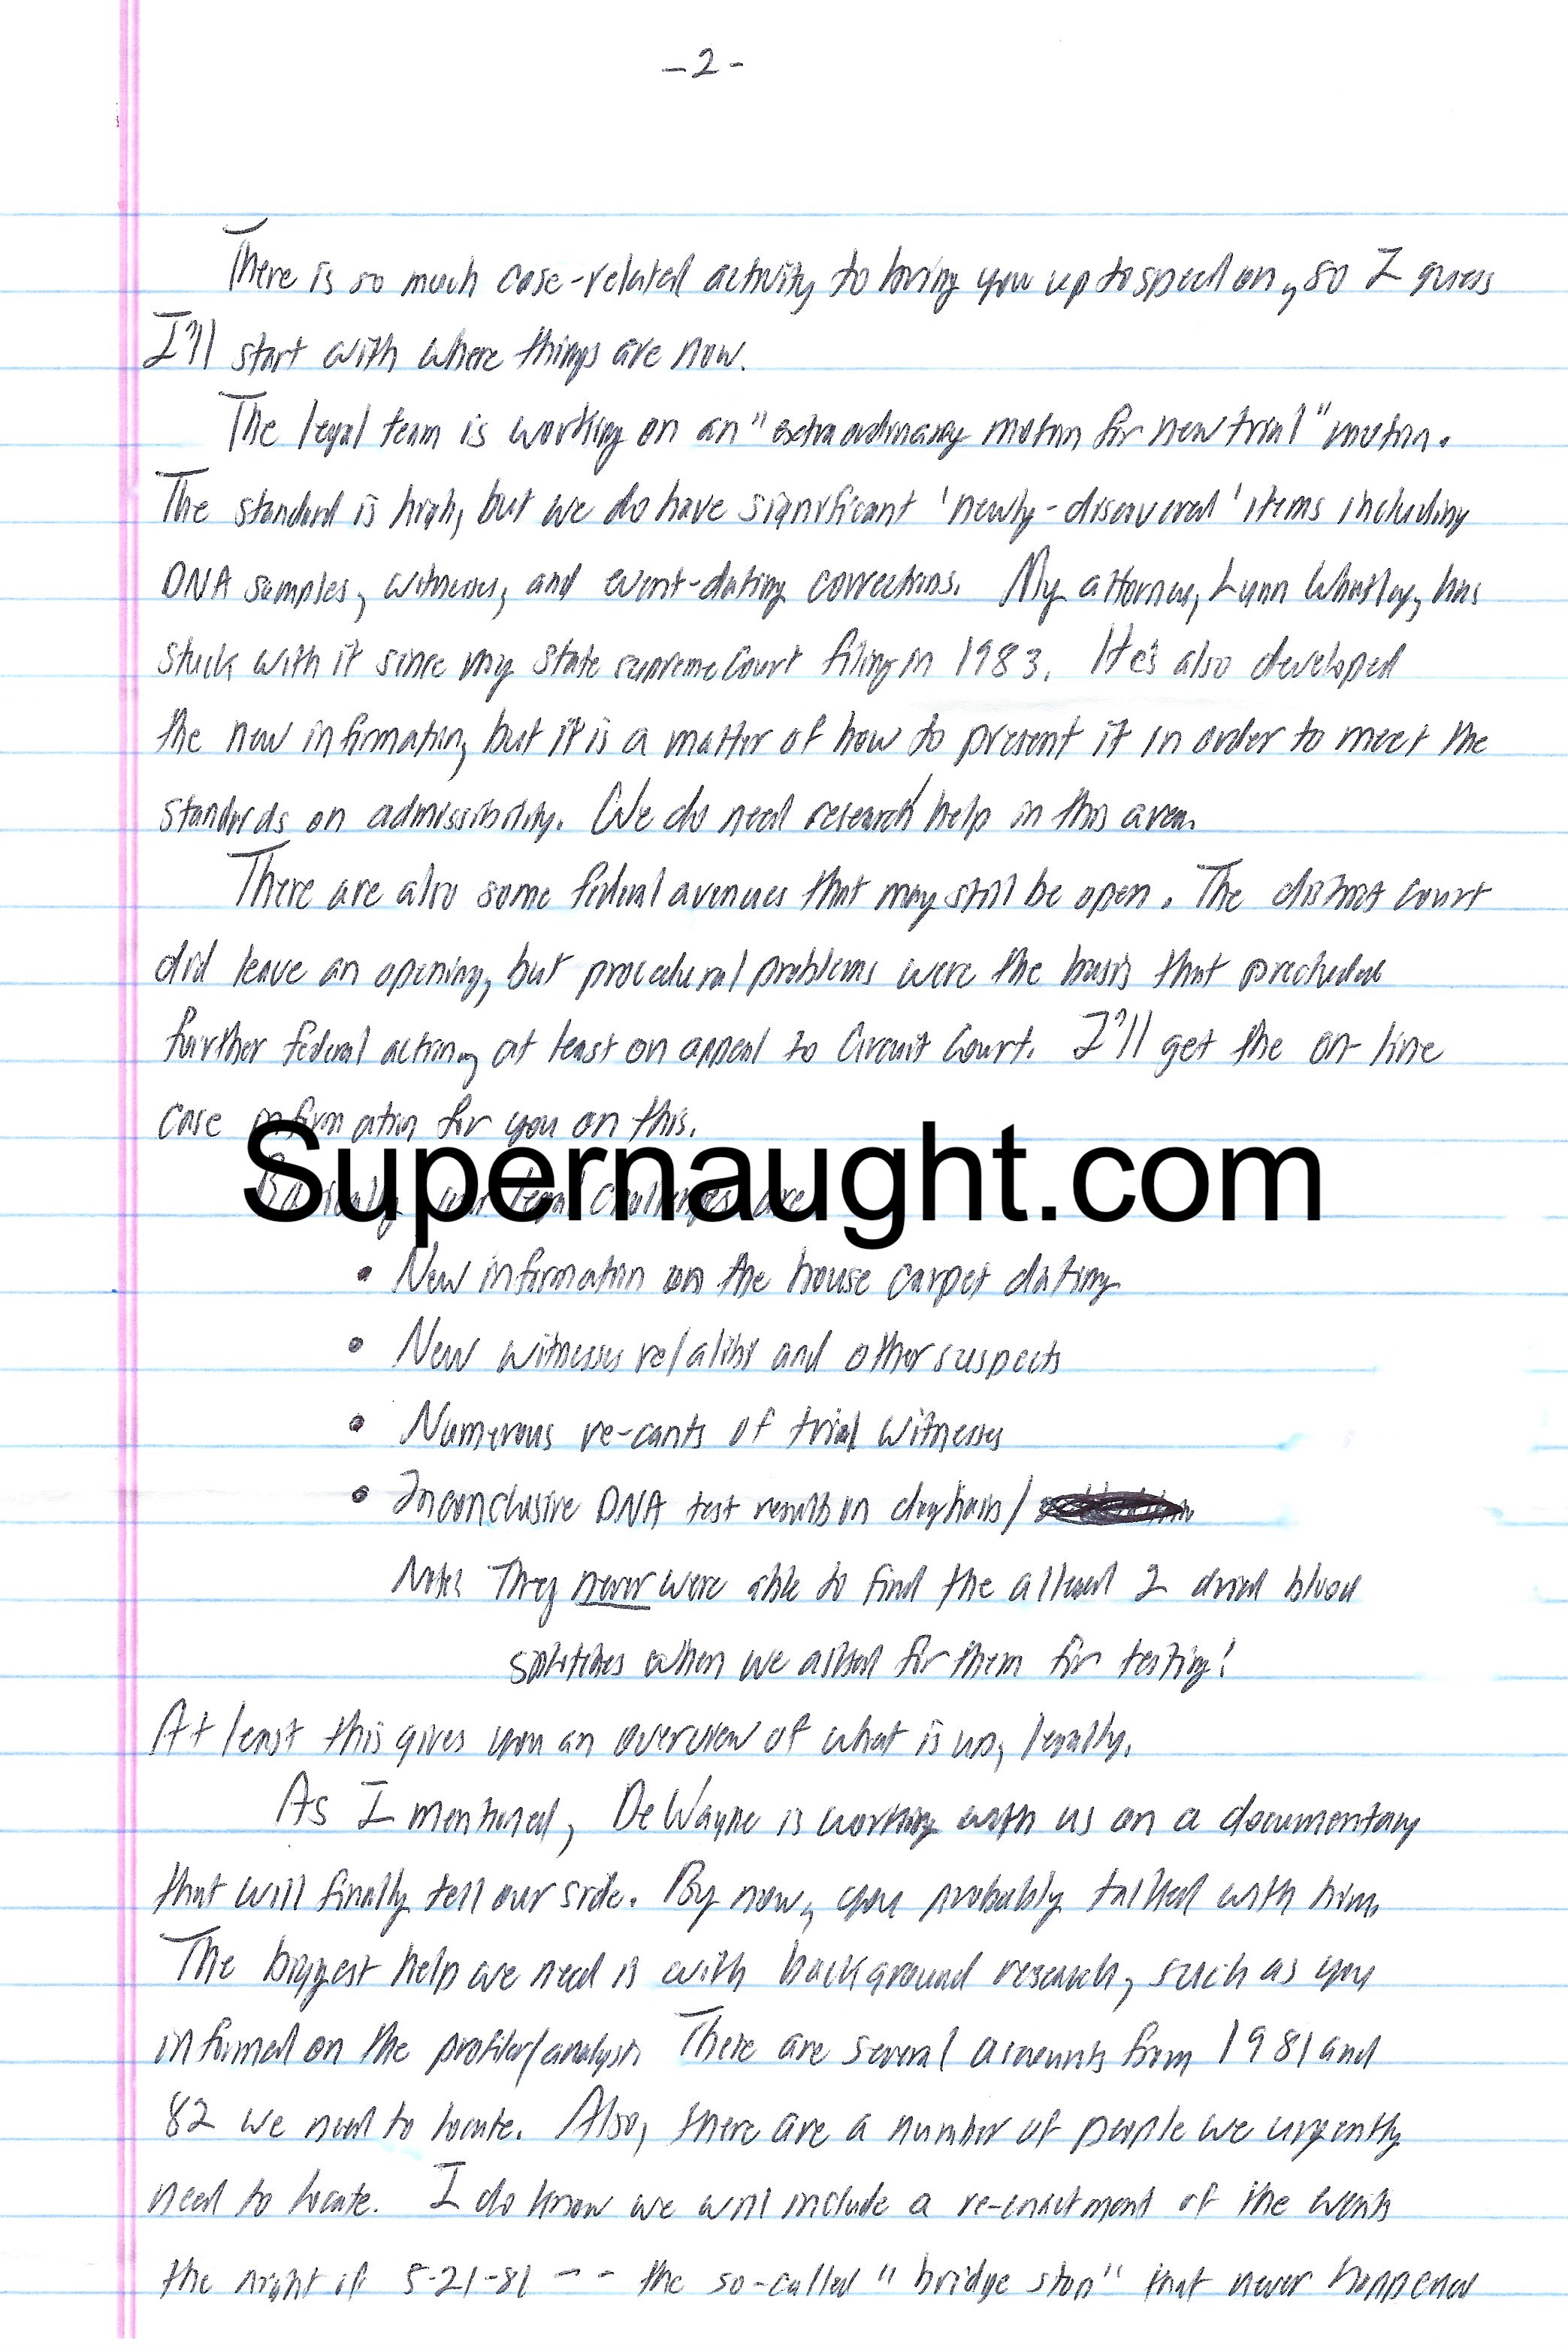 -2-
There is so much case-related activity to bring you up to speed on, so I guess
I'll start with where things are now.
The legal team is working on an "extraordinary motion for new trial" motion.
The standard is high, but we do have significant 'newly-discovered' items including
DNA samples, witnesses, and event-dating corrections. My attorney, Lynn Whatley, has
stuck with it since my state supreme Court filing in 1983. He's also developed
the new information, but it is a matter of how to present it in order to meet the
standards on admissibility. We do need research help in this area.
There are also some federal avenues that may still be open. The district court
did leave an opening, but procedural problems were the basis that precluded
further federal action, at least on appeal to Circuit Court. I'll get the on-line
case information for you on this.
Supernaught.com
Basically, our legal challenges are
• New information on the house carpet dating
• New witnesses re/alibi and other suspects
• Numerous re-cants of trial witnesses
• Inconclusive DNA test results on dog hairs/
Note: They never were able to find the alleged 2 dried blood
splotches when we asked for them for testing!
At least this gives you an overview of what is up, legally.
As I mentioned, DeWayne is working with us on a documentary
that will finally tell our side. By now, you probably talked with him.
The biggest help we need is with background research, such as you
informed on the profiler/analysis. There are several accounts from 1981 and
82 we need to locate. Also, there are a number of people we urgently
need to locate. I do know we will include a re-enactment of the events
the night of 5-21-81 -- the so-called "bridge stop" that never happened